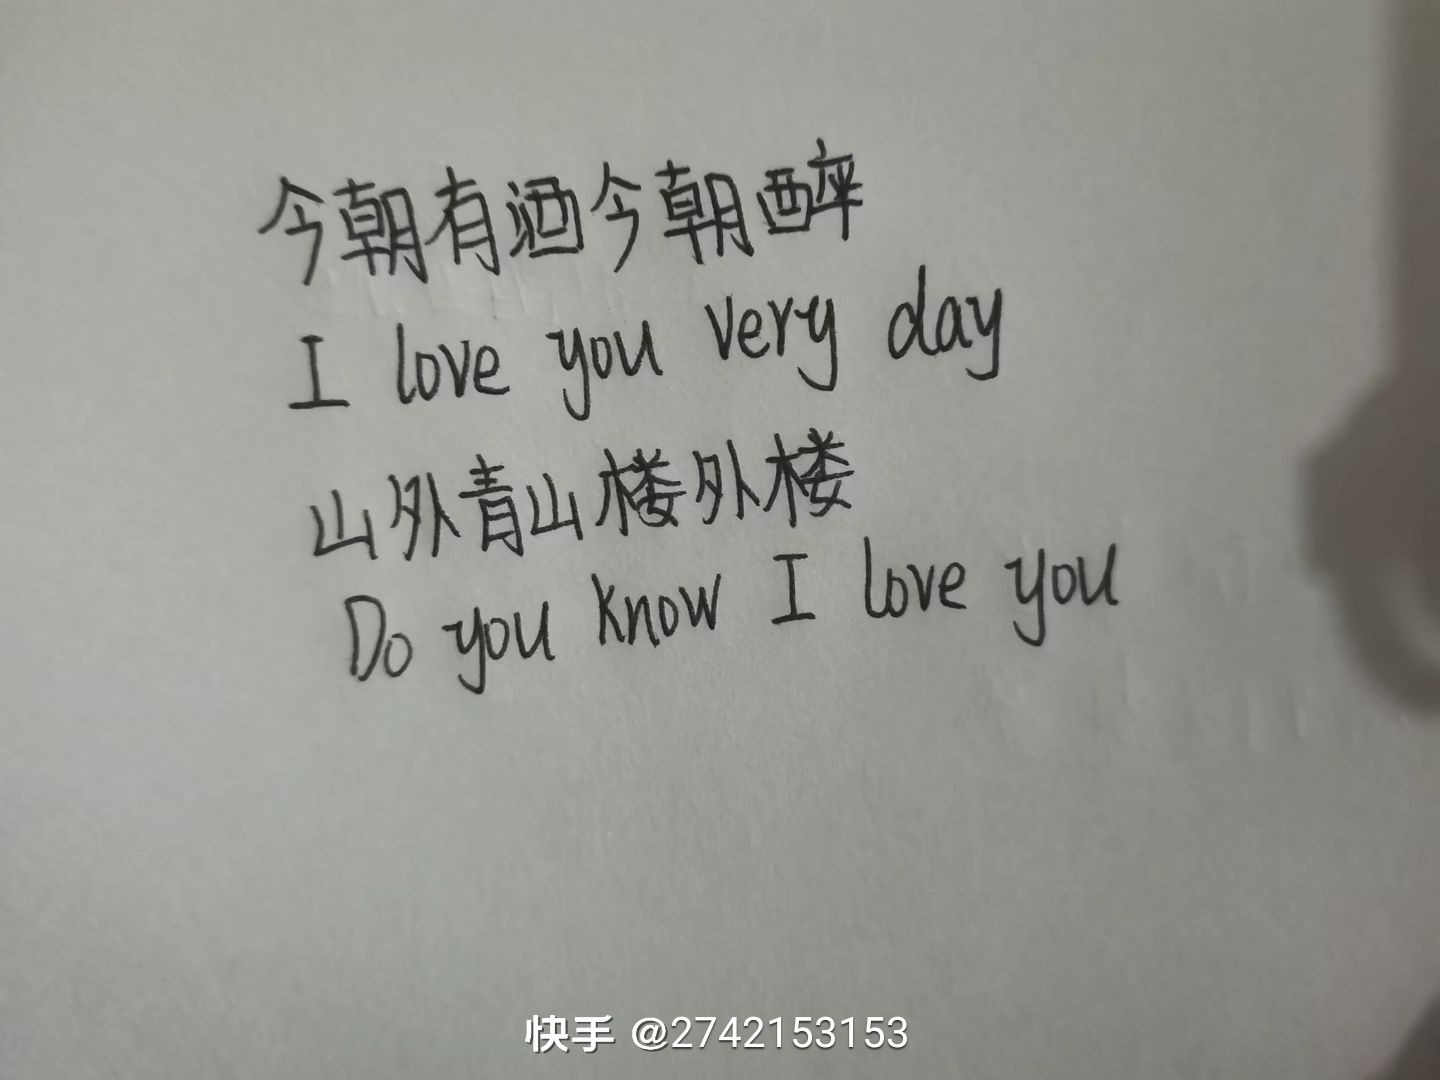 今朝有酒今朝醉
I love you very day
山外青山楼外楼
Do you know I love you
快手 @2742153153